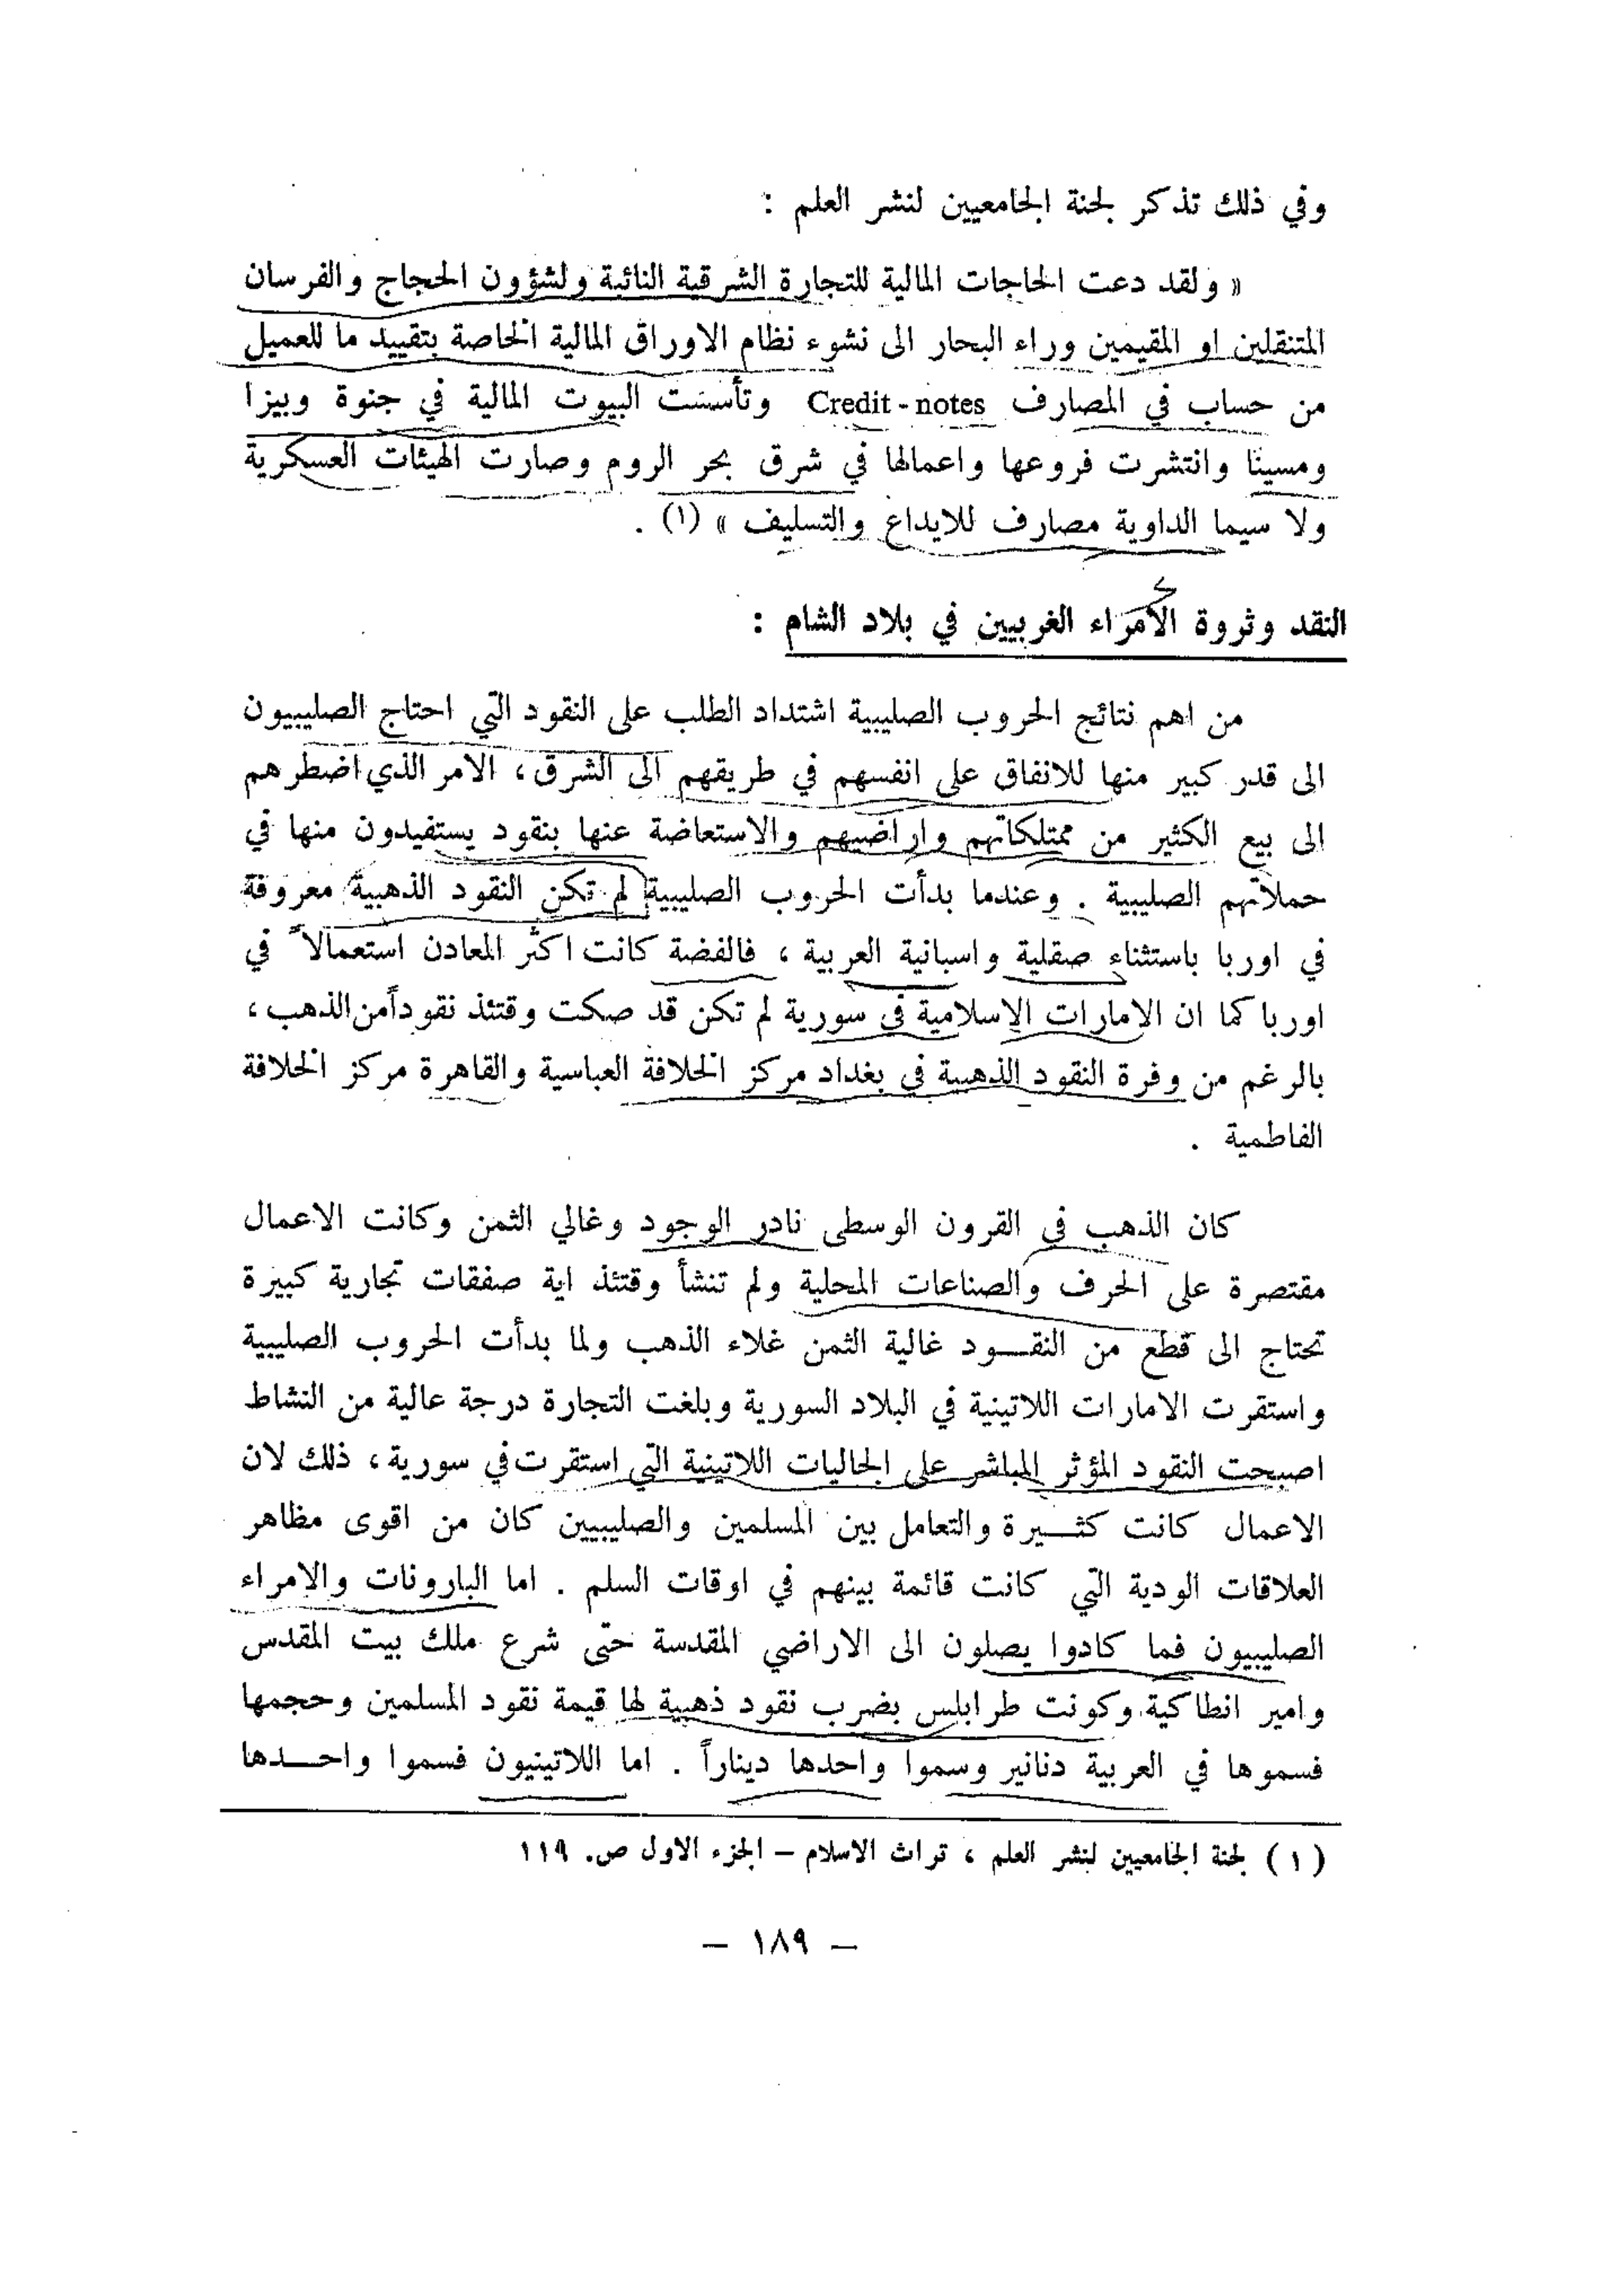 وفي ذلك تذكر لجنة الجامعيين لنشر العلم :
« ولقد دعت الحاجات المالية للتجارة الشرقية النائبة ولشؤون الحجاج والفرسان
المتنقلين او المقيمين وراء البحار الى نشوء نظام الاوراق المالية الخاصة بتقييد ما للعميل
من حساب في المصارف Credit - notes وتأسست البيوت المالية في جنوة وبيزا
ومسينا وانتشرت فروعها واعمالها في شرق بحر الروم وصارت الهيئات العسكرية
ولا سيما الداوية مصارف للايداع والتسليف » (١) .
النقد وثروة الأمراء الغربيين في بلاد الشام :
من اهم نتائج الحروب الصليبية اشتداد الطلب على النقود التي احتاج الصليبيون
الى قدر كبير منها للانفاق على انفسهم في طريقهم الى الشرق ، الامر الذي اضطرهم
الى بيع الكثير من ممتلكاتهم واراضيهم والاستعاضة عنها بنقود يستفيدون منها في
حملاتهم الصليبية . وعندما بدأت الحروب الصليبية لم تكن النقود الذهبية معروفة
في اوربا باستثناء صقلية واسبانية العربية ، فالفضة كانت اكثر المعادن استعمالاً في
اوربا كما ان الإمارات الإسلامية في سورية لم تكن قد صكت وقتئذ نقوداً من الذهب ،
بالرغم من وفرة النقود الذهبية في بغداد مركز الخلافة العباسية والقاهرة مركز الخلافة
الفاطمية .
كان الذهب في القرون الوسطى نادر الوجود وغالي الثمن وكانت الاعمال
مقتصرة على الحرف والصناعات المحلية ولم تنشأ وقتئذ اية صفقات تجارية كبيرة
تحتاج الى قطع من النقـــود غالية الثمن غلاء الذهب ولما بدأت الحروب الصليبية
واستقرت الامارات اللاتينية في البلاد السورية وبلغت التجارة درجة عالية من النشاط
اصبحت النقود المؤثر المباشر على الجاليات اللاتينية التي استقرت في سورية ، ذلك لان
الاعمال كانت كثـــيرة والتعامل بين المسلمين والصليبيين كان من اقوى مظاهر
العلاقات الودية التي كانت قائمة بينهم في اوقات السلم . اما البارونات والامراء
الصليبيون فما كادوا يصلون الى الاراضي المقدسة حتى شرع ملك بيت المقدس
وامير انطاكية وكونت طرابلس بضرب نقود ذهبية لها قيمة نقود المسلمين وحجمها
فسموها في العربية دنانير وسموا واحدها ديناراً . اما اللاتينيون فسموا واحـــدها
(١) لجنة الجامعيين لنشر العلم ، تراث الاسلام – الجزء الاول ص. ١١٩
– ١٨٩ –